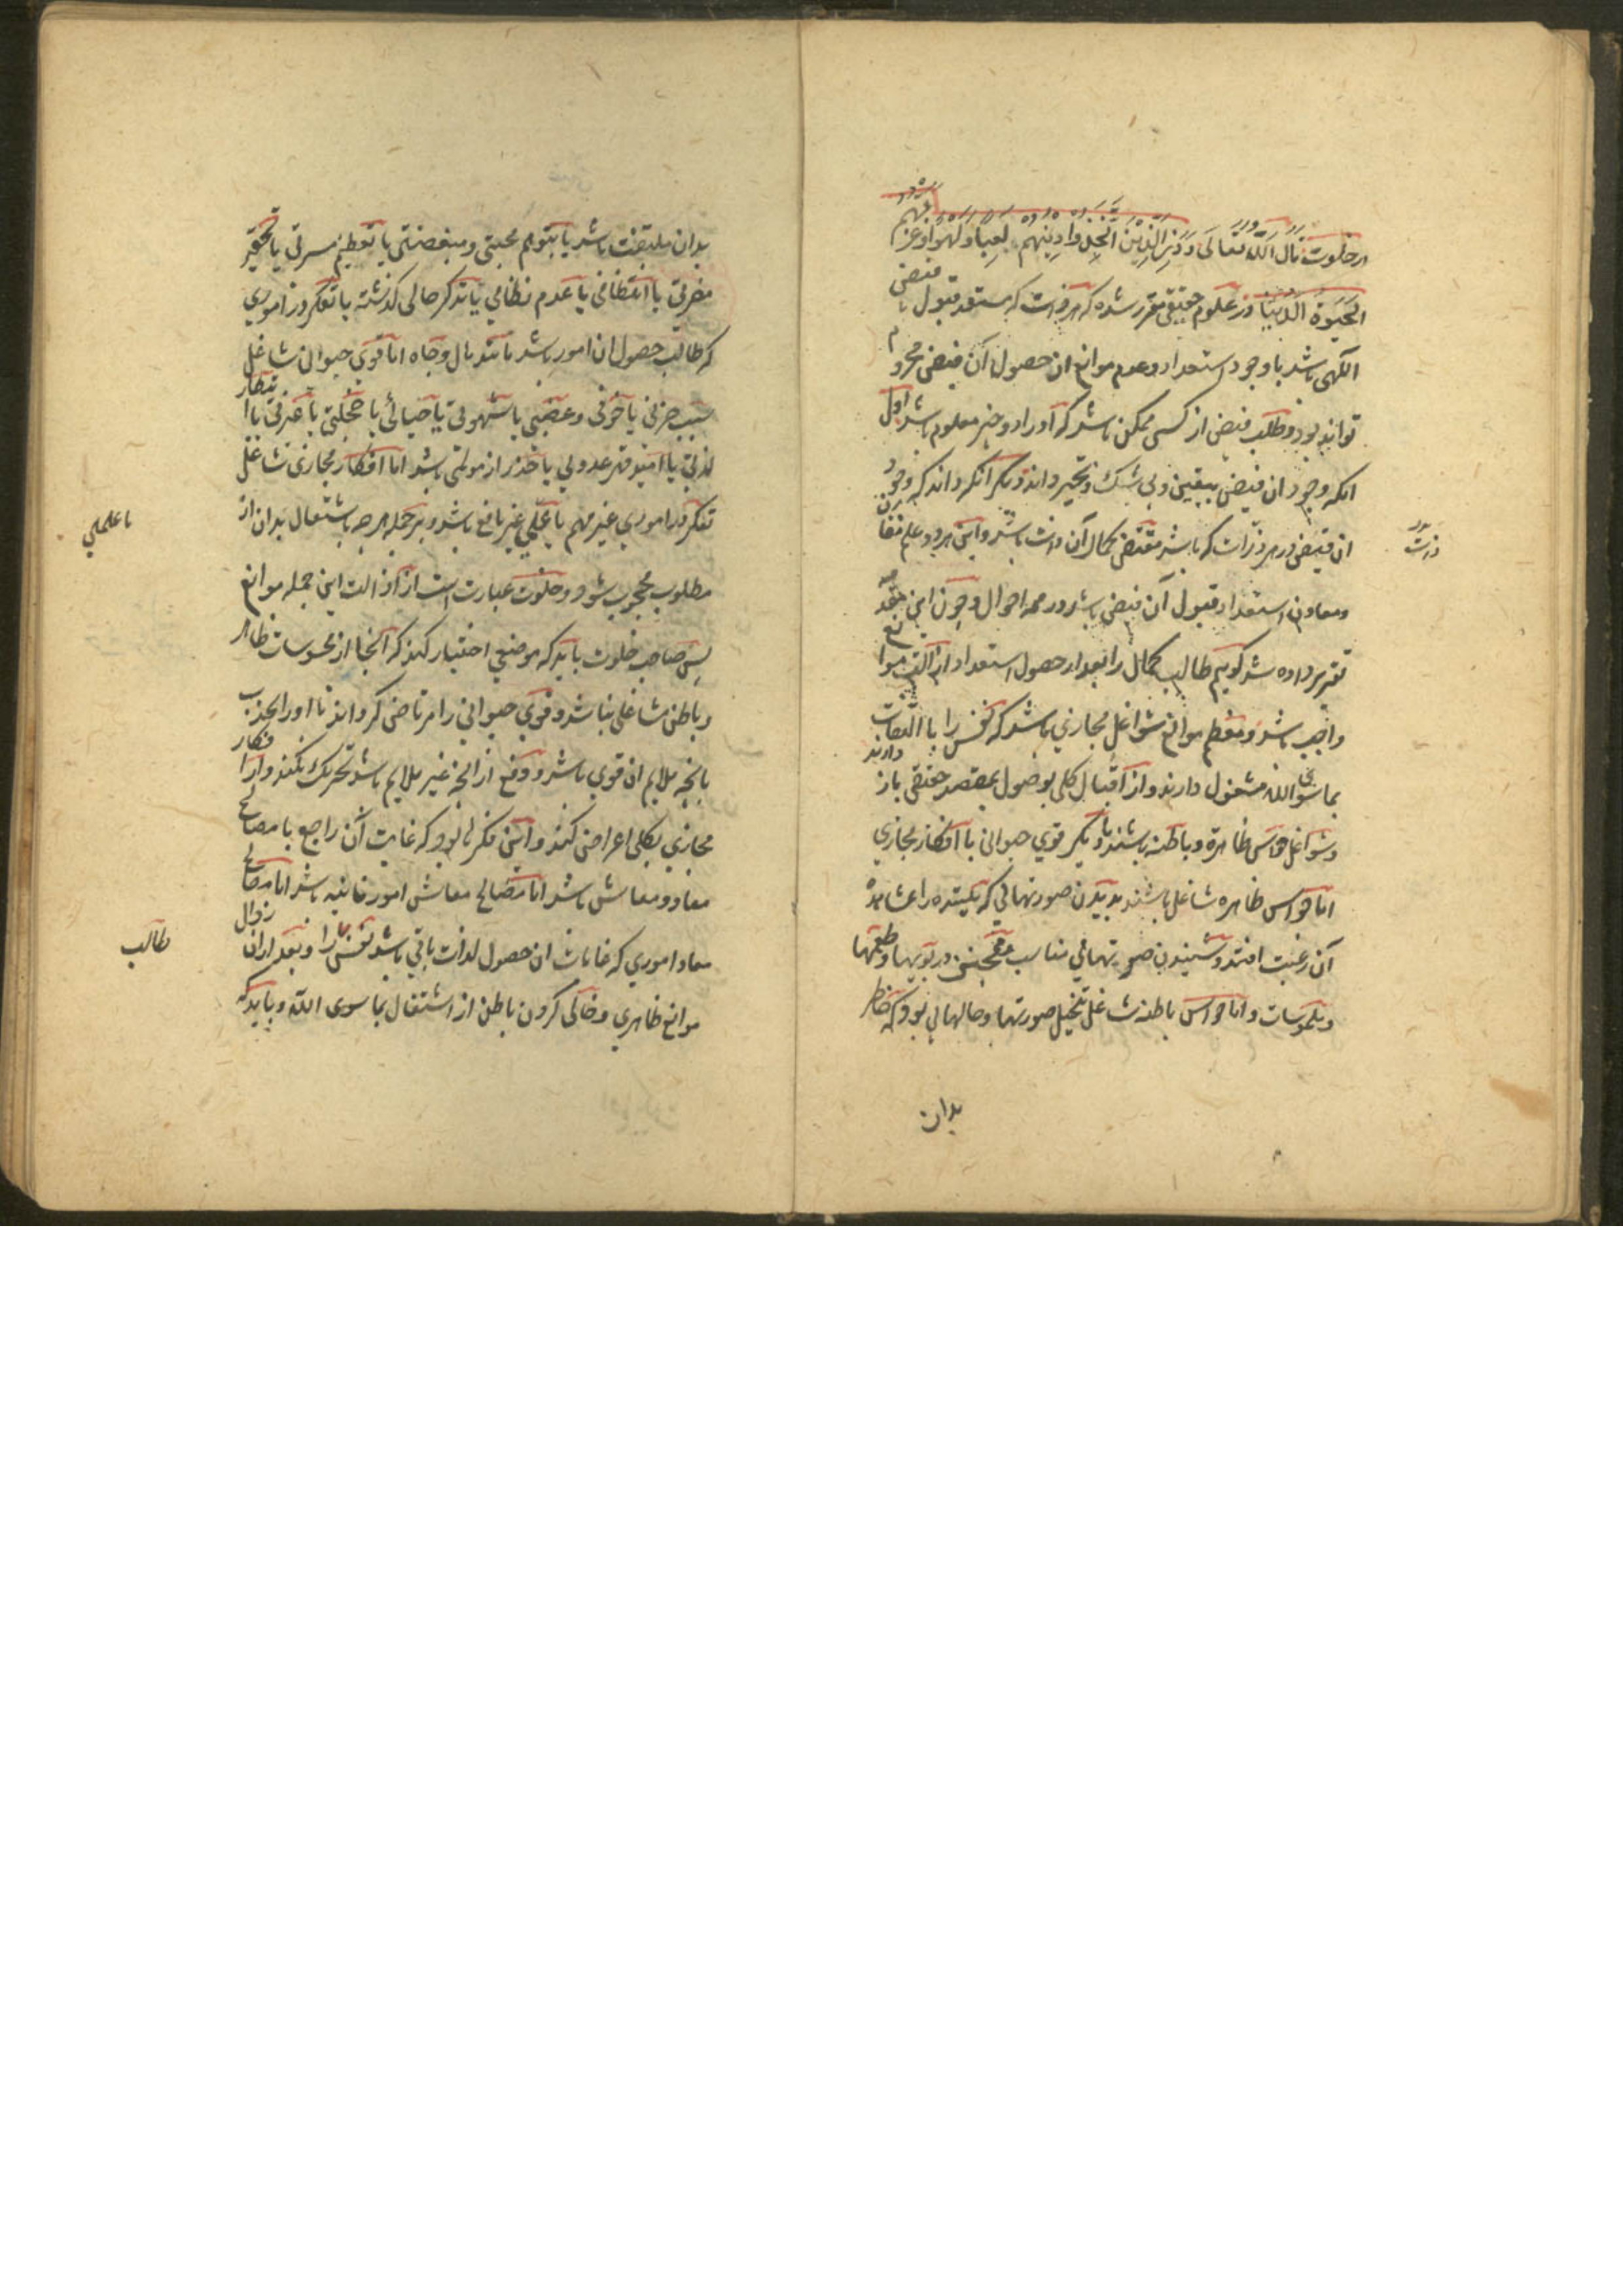 در خلوت قال الله تعالی وذر الذین اتخذوا دینهم لعبا ولهوا وغرتهم
الحیوة الدنیا در علوم حقیقی مقرر شده که هر ذات که مستعد قبول فیض
الهی باشد با وجود استعداد و عدم موانع از حصول آن فیض محروم
نتواند بود و طلب فیض از کسی ممکن باشد که او را دو چیز معلوم باشد اول
انکه وجود ان فیض بیقین و بی شک و تحیر داند و دیگر آنکه داند که وجود
ان فیض در هر ذات که باشد مقتضی کمال آن ذات باشد و این هر دو علم مقارن
ومعاون استعداد قبول آن فیض باشد در همه احوال و چون این مقدمه
تقریر داده شد گوییم طالب کمال را بعد از حصول استعداد ازالت موانع
واجب باشد و معظم موانع شواغل مجازی باشد که نفس را با التفات
بما سوی الله مشغول دارند و از اقبال کلی بوصول بمقصد حقیقی باز دارند
و شواغل حواس ظاهرة و باطنه باشند یا دیگر قوی حیوانی یا افکار مجازی
اما حواس ظاهره شاغل باشند بدیدن صورتهائی که بیننده را بمشاهدهٔ
آن رغبت افتد و شنیدن صوتهائی مناسب و همچنین در بویها و طعمها
و ملموسات و اما حواس باطنه شاغل بتخیل صورتها و حالهائی بود که خاطر
بدان
ذات
بدان ملتفت باشد یا بتوهم محبتی و مبغضتی یا تعظیم مسرتی یا تحقیر
مضرتی یا انتظامی یا عدم نظامی یا تذکر حالی گذشته یا تفکر در اموری
که طالب حصول ان امور باشد مانند مال و جاه اما قوی حیوانی شاغل
بسبب حزنی یا خوفی و غضبی یا شهوتی یا خیانتی یا خجلتی یا غیرتی یا انتظار
لذتی یا امید قهر عدوی یا حذر از مولمی باشد اما افکار مجازی شاغل
تفکر در اموری غیر مهم یا علمی غیر نافع باشد و بر جمله هر چه باشتغال بدان از
مطلوب محجوب شود و خلوت عبارت است از ازالت این جمله موانع
پس صاحب خلوت باید که موضعی اختیار کند که آنجا از محسوسات ظاهر
و باطن شاغلی نباشد و قوی حیوانی را مرتاض گرداند تا او را بجذب
بانچه ملایم ان قوی باشد و دفع از انچه غیر ملایم باشد تحریک نکنند و از افکار
مجازی بکلی اعراض کند و این فکرها بود که غایت آن راجع با مصالح
معاد و معاش باشد اما مصالح معاش امور فانیه باشد اما مصالح
معاد اموری که غایات ان حصول لذات باقی باشد نفس را و بعد از زوال
موانع ظاهری و خالی کردن باطن از اشتغال بما سوی الله و باید که
یا علمی
طالب